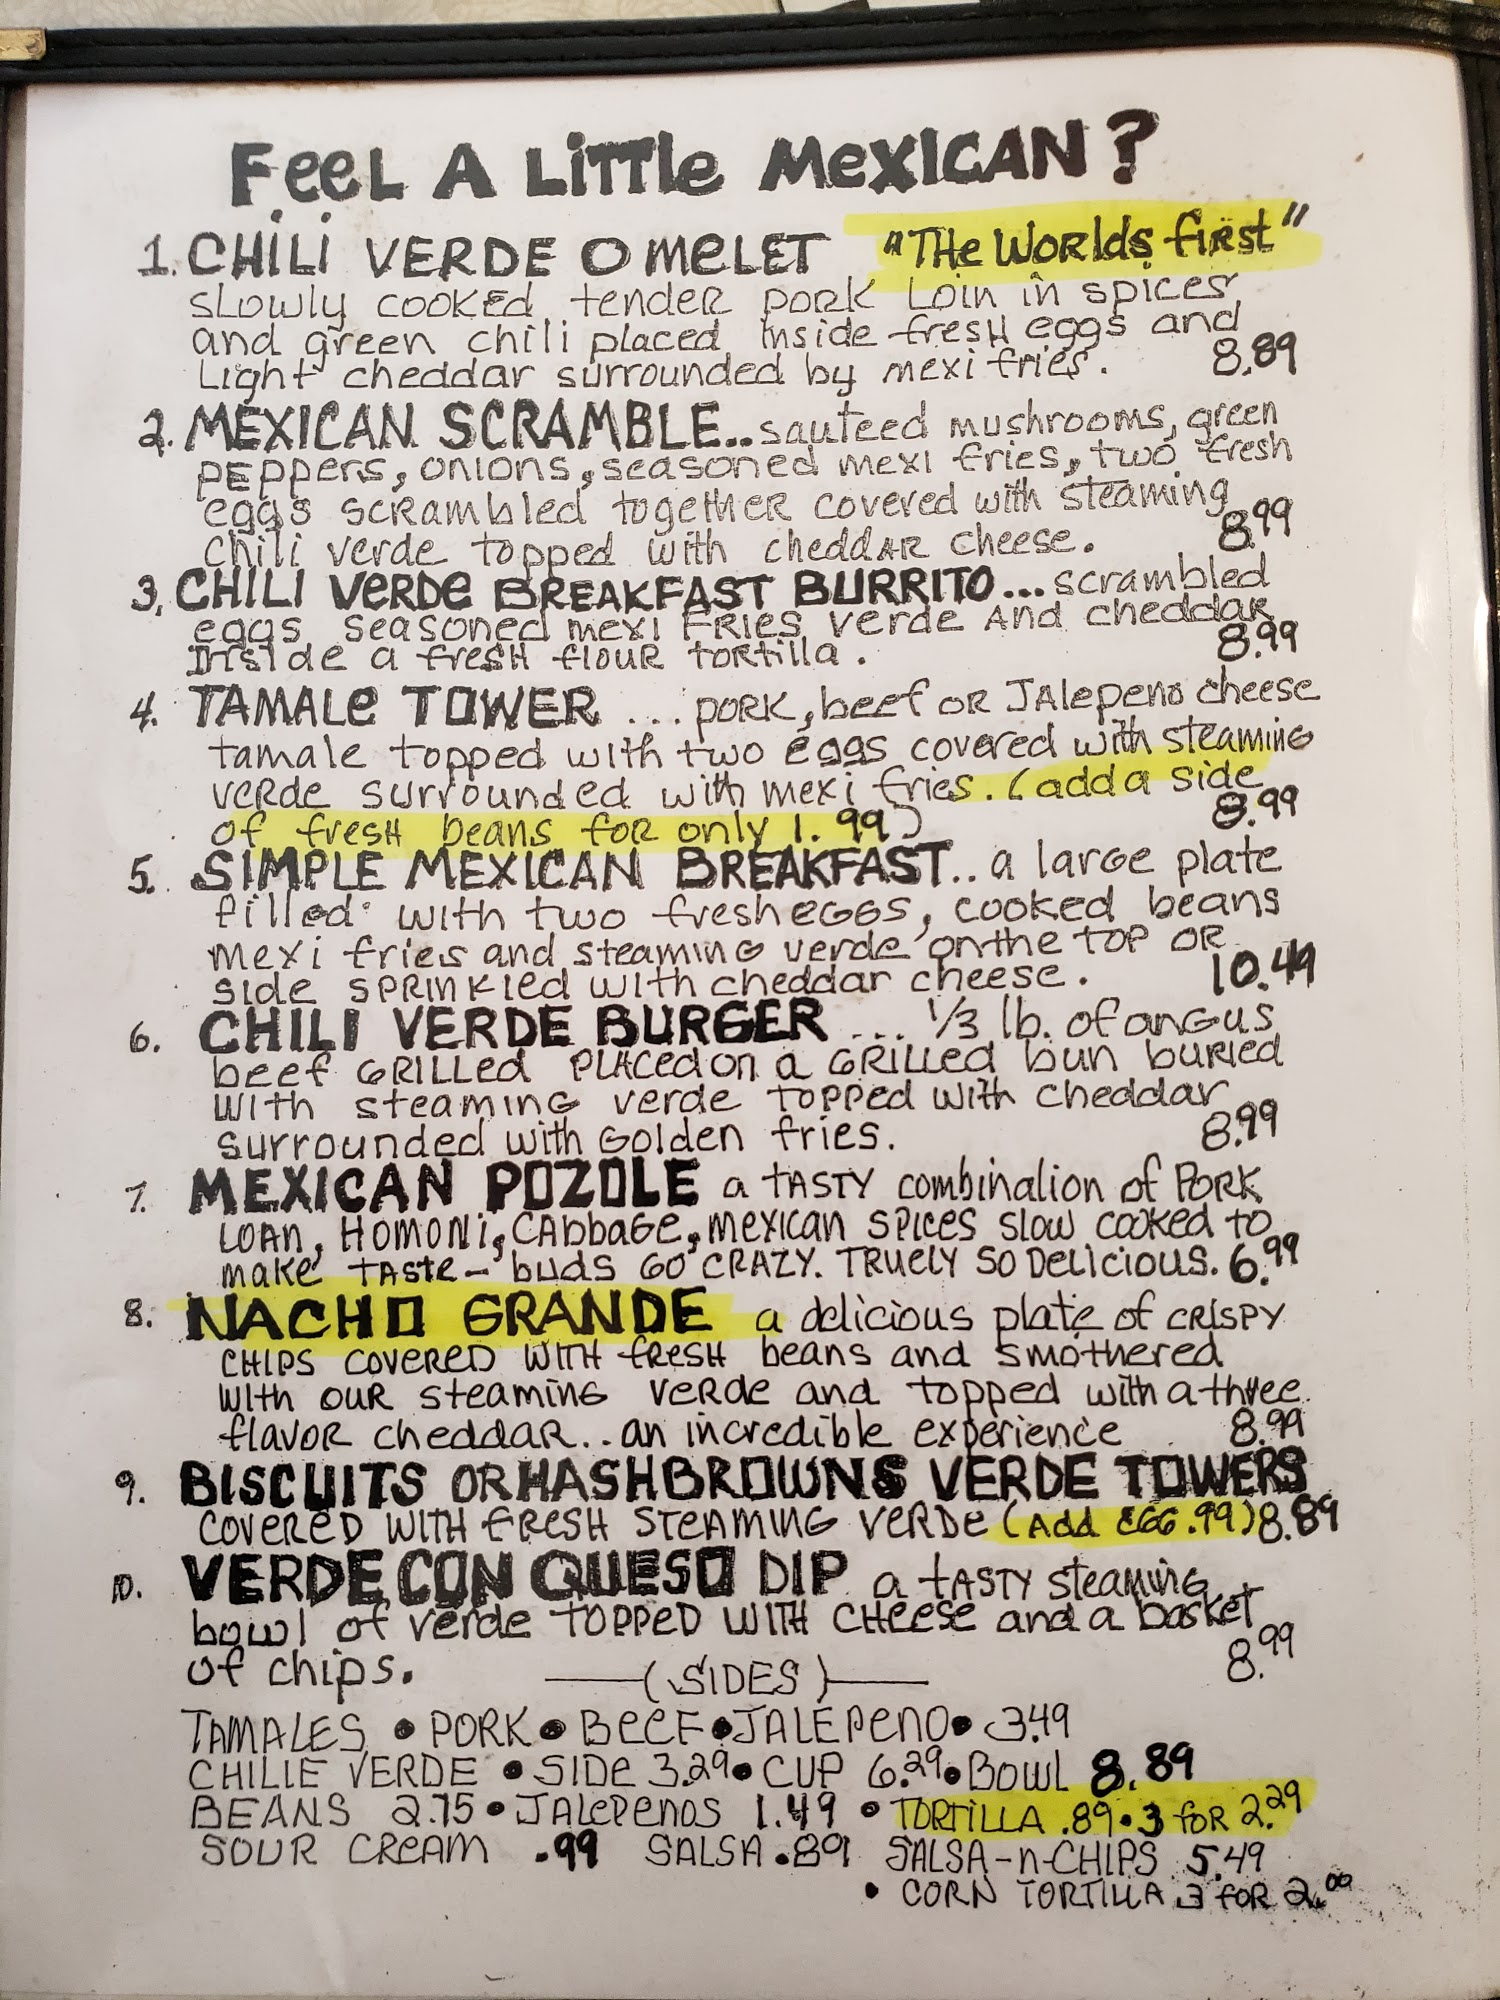 FeeL A LiTTle MeXICAN?
1. CHILI VERDE OMeLET "THe Worlds first"
slowly cooked tender pork Loin in spices
and green chili placed inside fresh eggs and
Light cheddar surrounded by mexi fries. 8.89
2. MEXICAN SCRAMBLE.. sauteed mushrooms, green
peppers, onions, seasoned mexi fries, two fresh
eggs scrambled together covered with steaming
chili verde topped with cheddar cheese. 8.99
3. CHILI Verde BREAKFAST BURRITO... scrambled
eggs seasoned mexi FRIES verde And cheddar
Inside a fresh flour tortilla. 8.99
4. TAMALe TOWER ... PORK, beef OR JAlepeno cheese
tamale topped with two eggs covered with steaming
verde surrounded with mexi fries. (add a side
of fresh beans for only 1.99) 8.99
5. SIMPLE MEXICAN BREAKFAST.. a large plate
filled with two fresh eGGS, cooked beans
mexi fries and steaming verde on the TOP OR
side SPRINKled with cheddar cheese. 10.49
6. CHILI VERDE BURGER ... 1/3 lb. of anGus
beef GRILLed PLACed on a GRILLed bun buried
with steaming verde topped with cheddar
surrounded with Golden fries. 8.99
7. MEXICAN POZOLE a TASTY combination of PORK
LOAN, HOMONI, CAbbaGe, mexican spices slow cooked to
make TASTe-buds GO CRAZY. TRUELY SO DeLicious. 6.99
8. NACHO GRANDE a delicious plate of CRISPY
CHIPS COVERED WITH fresh beans and smothered
with our steaming verde and topped with a three
flavor cheddar.. an incredible experience 8.99
9. BISCUITS OR HASHBROWNS VERDE TOWERS
COVERED WITH fresh STEAMING VERDe (Add EGG .99) 8.89
10. VERDE CON QUESO DIP a TASTY steaming
bowl of verde TOPPED WITH CHeese and a basket
of chips. 8.99
(SIDES)
TAMALES • PORK • BeeF • JALEPenO • 3.49
CHILIE VERDE • SIDe 3.29 • CUP 6.29 • BOWL 8.89
BEANS 2.75 • JALePenos 1.49 • TORTILLA .89 • 3 for 2.29
SOUR CReam .99 SALSA .89 SALSA-n-CHIPS 5.49
• CORN TORTILLA 3 for 2.00